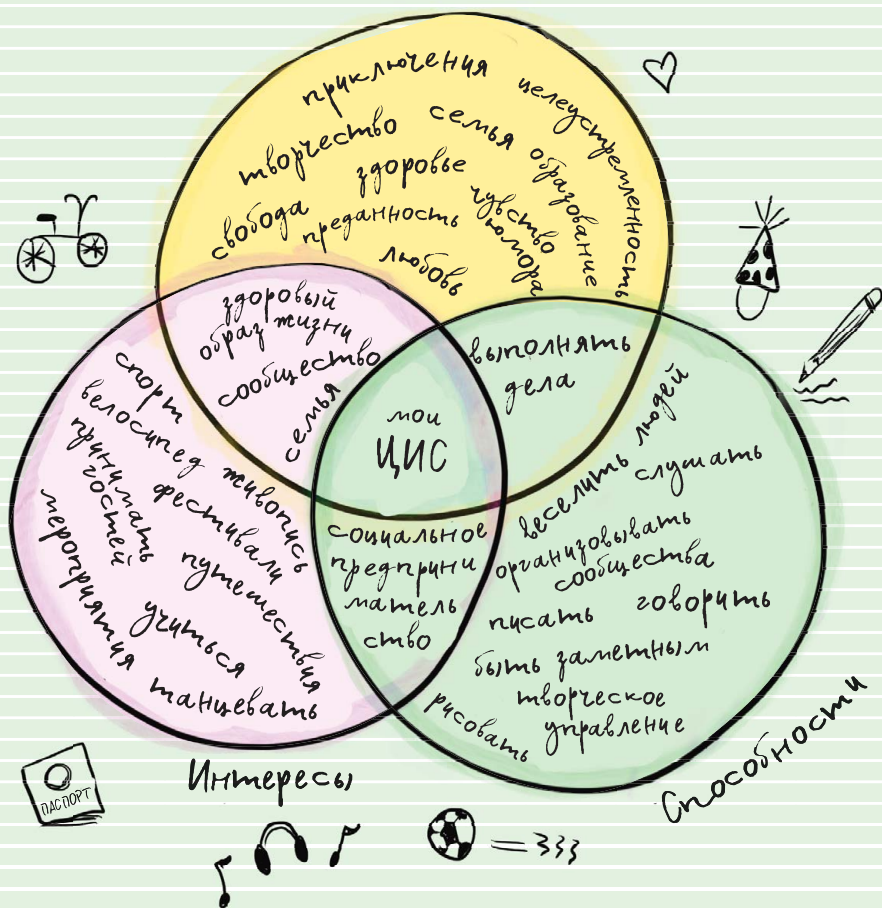 приключения
целеустремленность
творчество
семья
здоровье
образование
свобода
преданность
чувство
юмора
любовь
здоровый
образ жизни
сообщество
семья
выполнять
дела
мои
ЦИС
спорт
велосипед
принимать
гостей
мероприятия
живопись
фестивали
путешествия
учиться
танцевать
социальное
предприни
матель
ство
веселить людей
слушать
организовывать
сообщества
писать
говорить
быть заметным
творческое
управление
рисовать
Интересы
Способности
ПАСПОРТ